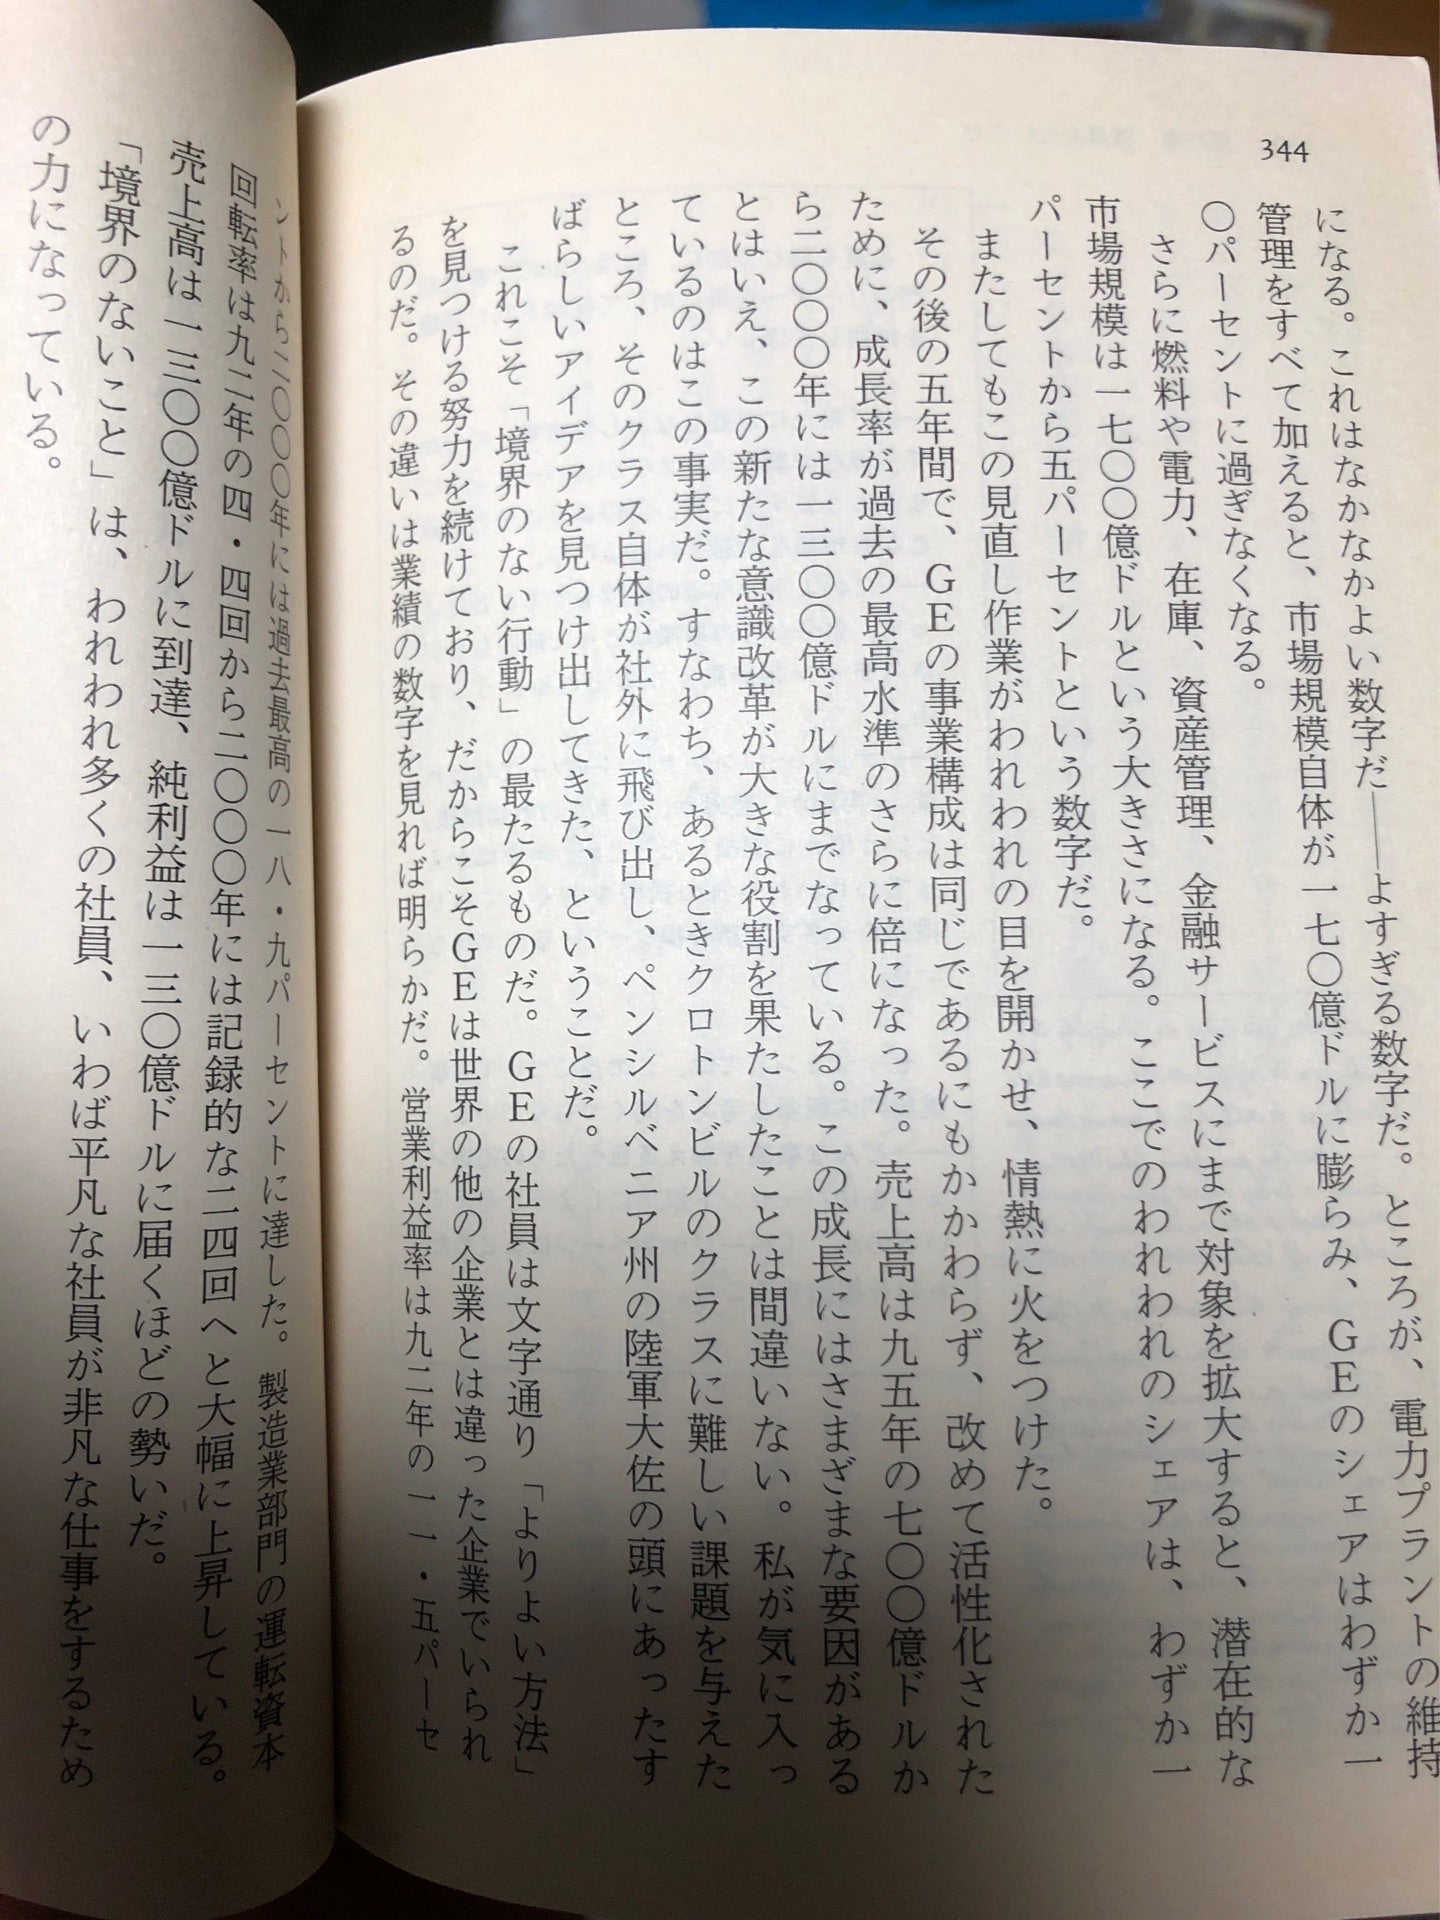 344
になる。これはなかなかよい数字だ――よすぎる数字だ。ところが、電力プラントの維持
管理をすべて加えると、市場規模自体が一七〇億ドルに膨らみ、GEのシェアはわずか一
〇パーセントに過ぎなくなる。
さらに燃料や電力、在庫、資産管理、金融サービスにまで対象を拡大すると、潜在的な
市場規模は一七〇〇億ドルという大きさになる。ここでのわれわれのシェアは、わずか一
パーセントから五パーセントという数字だ。
またしてもこの見直し作業がわれわれの目を開かせ、情熱に火をつけた。
その後の五年間で、GEの事業構成は同じであるにもかかわらず、改めて活性化された
ために、成長率が過去の最高水準のさらに倍になった。売上高は九五年の七〇〇億ドルか
ら二〇〇〇年には一三〇〇億ドルにまでなっている。この成長にはさまざまな要因がある
とはいえ、この新たな意識改革が大きな役割を果たしたことは間違いない。私が気に入っ
ているのはこの事実だ。すなわち、あるときクロトンビルのクラスに難しい課題を与えた
ところ、そのクラス自体が社外に飛び出し、ペンシルベニア州の陸軍大佐の頭にあったす
ばらしいアイデアを見つけ出してきた、ということだ。
これこそ「境界のない行動」の最たるものだ。GEの社員は文字通り「よりよい方法」
を見つける努力を続けており、だからこそGEは世界の他の企業とは違った企業でいられ
るのだ。その違いは業績の数字を見れば明らかだ。営業利益率は九二年の一一・五パーセ
ントから二〇〇〇年には過去最高の一八・九パーセントに達した。製造業部門の運転資本
回転率は九二年の四・四回から二〇〇〇年には記録的な二四回へと大幅に上昇している。
売上高は一三〇〇億ドルに到達、純利益は一三〇億ドルに届くほどの勢いだ。
「境界のないこと」は、われわれ多くの社員、いわば平凡な社員が非凡な仕事をするため
の力になっている。